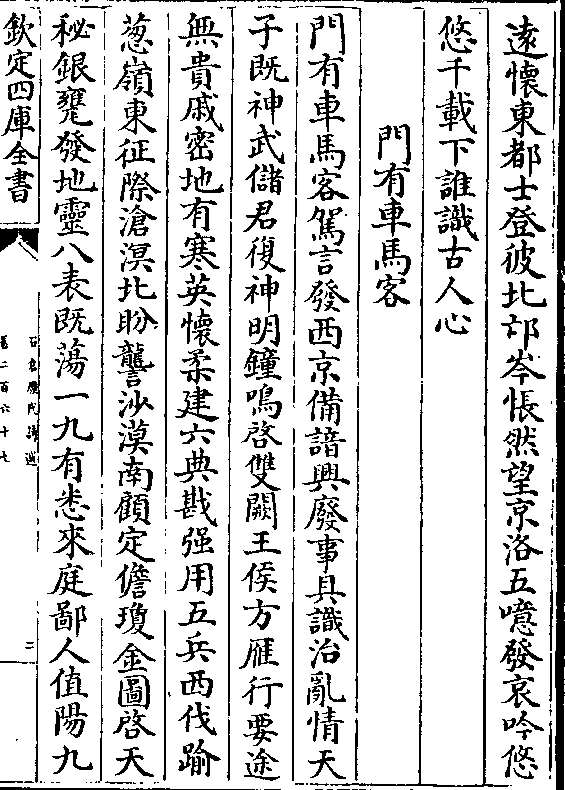 遠懷東都士登彼北邙岑悵然望京洛五噫發哀吟悠
悠千載下誰識古人心
門有車馬客
門有車馬客駕言發西京備諳興廢事具識治亂情天
子既神武儲君復神明鐘鳴啓雙闕王侯方雁行要途
無貴戚密地有寒英懷柔建六典戡强用五兵西伐踰
葱嶺東征際滄溟北盼讋沙漠南顧定儋瓊金圖啓天
秘銀甕發地靈八表既蕩一九有悉來庭鄙人值陽九
欽定四庫全書
石倉歷代詩選
卷二百六十七
三